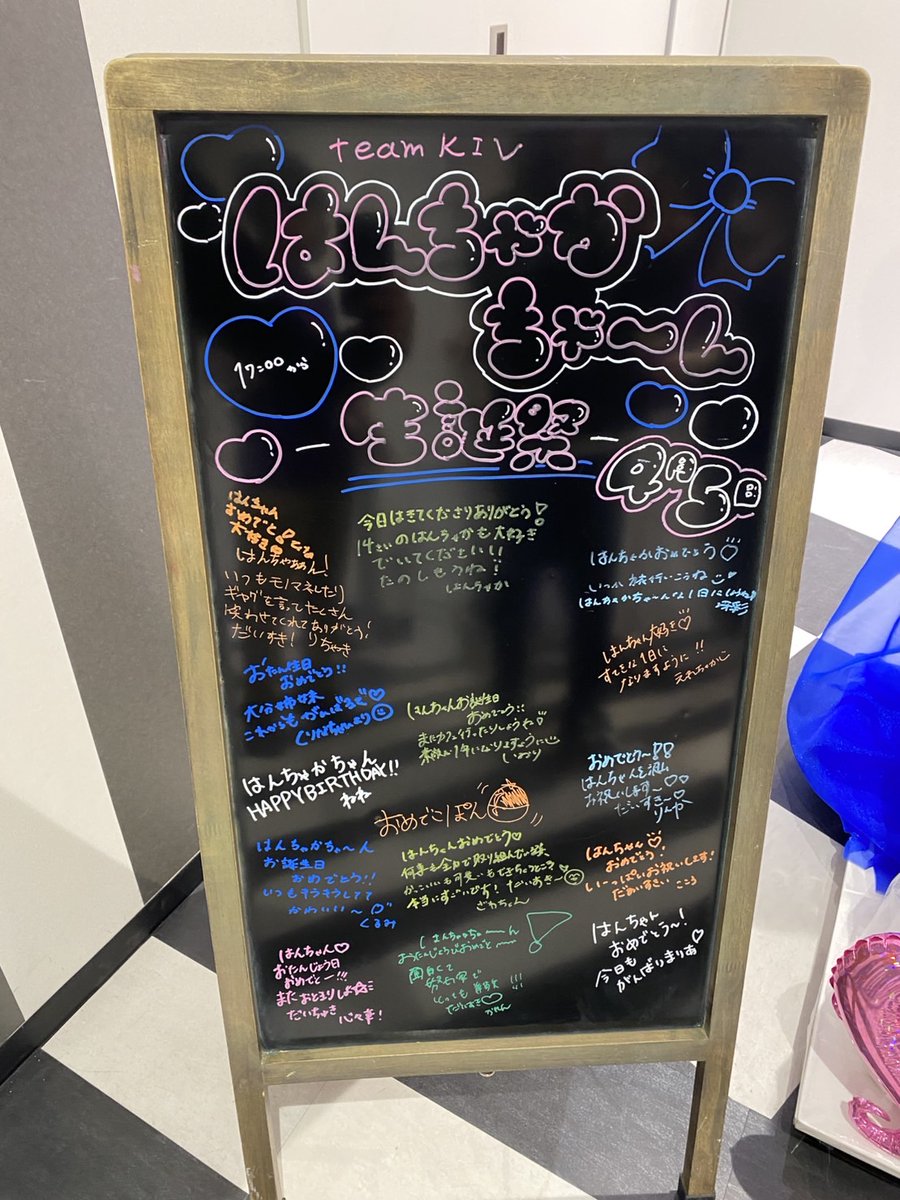 team KIV
はんちゃか
まだーん
17:00から
生誕祭
9月5日
はんちゃん
おめでと!
大好き
はんちゃああん!
いつもモノマネしたり
ギャグを言ってたくさん
笑わせてくれてありがとう!
だいすき! りちゃき
今日はきてくださりありがとう!
14さいのはんちゃかも大好き
でいてください!!
たのしもうね!
はんちゃか
はんちゃかおめでとう♡
いつか旅行いこうね
はんちゃん大好き♡
すてきな1日に
なりますように!!
おたん生日
おめでとう!!
大谷姉妹
これからもがんばるぞ♡
はんちゃんお誕生日
おめでとう!!
またカフェ行ったりしようね♡
素敵な1年になりますように
いおり
はんちゃかちゃん
HAPPY BIRTHDAY!!
ねね
おめでとう〜!!
はんちゃんを沢山
お祝いします〜♡
だいすき〜♡
おめでこぽん
はんちゃかちゃ〜ん
お誕生日
おめでとう!!
いつもキラキラしてて
かわいい〜
くるみ
はんちゃんおめでとう♡
何事も全力で取り組んでいる姿
かっこいいも可愛いもできちゃうところ♡
本当にすごいです! だいすき〜
はんちゃん♡
おめでとう!
い〜っぱいお祝いします!
だぁいすき こころ
はんちゃん♡
おたんじょう日
おめでとー!!!
またおとまりしよ
だいちゅき
心々華!
おたんじょうびおめでと〜
面白くて
だいすき♡
はんちゃん
おめでとう〜!
今日も
がんばりまりあ♡